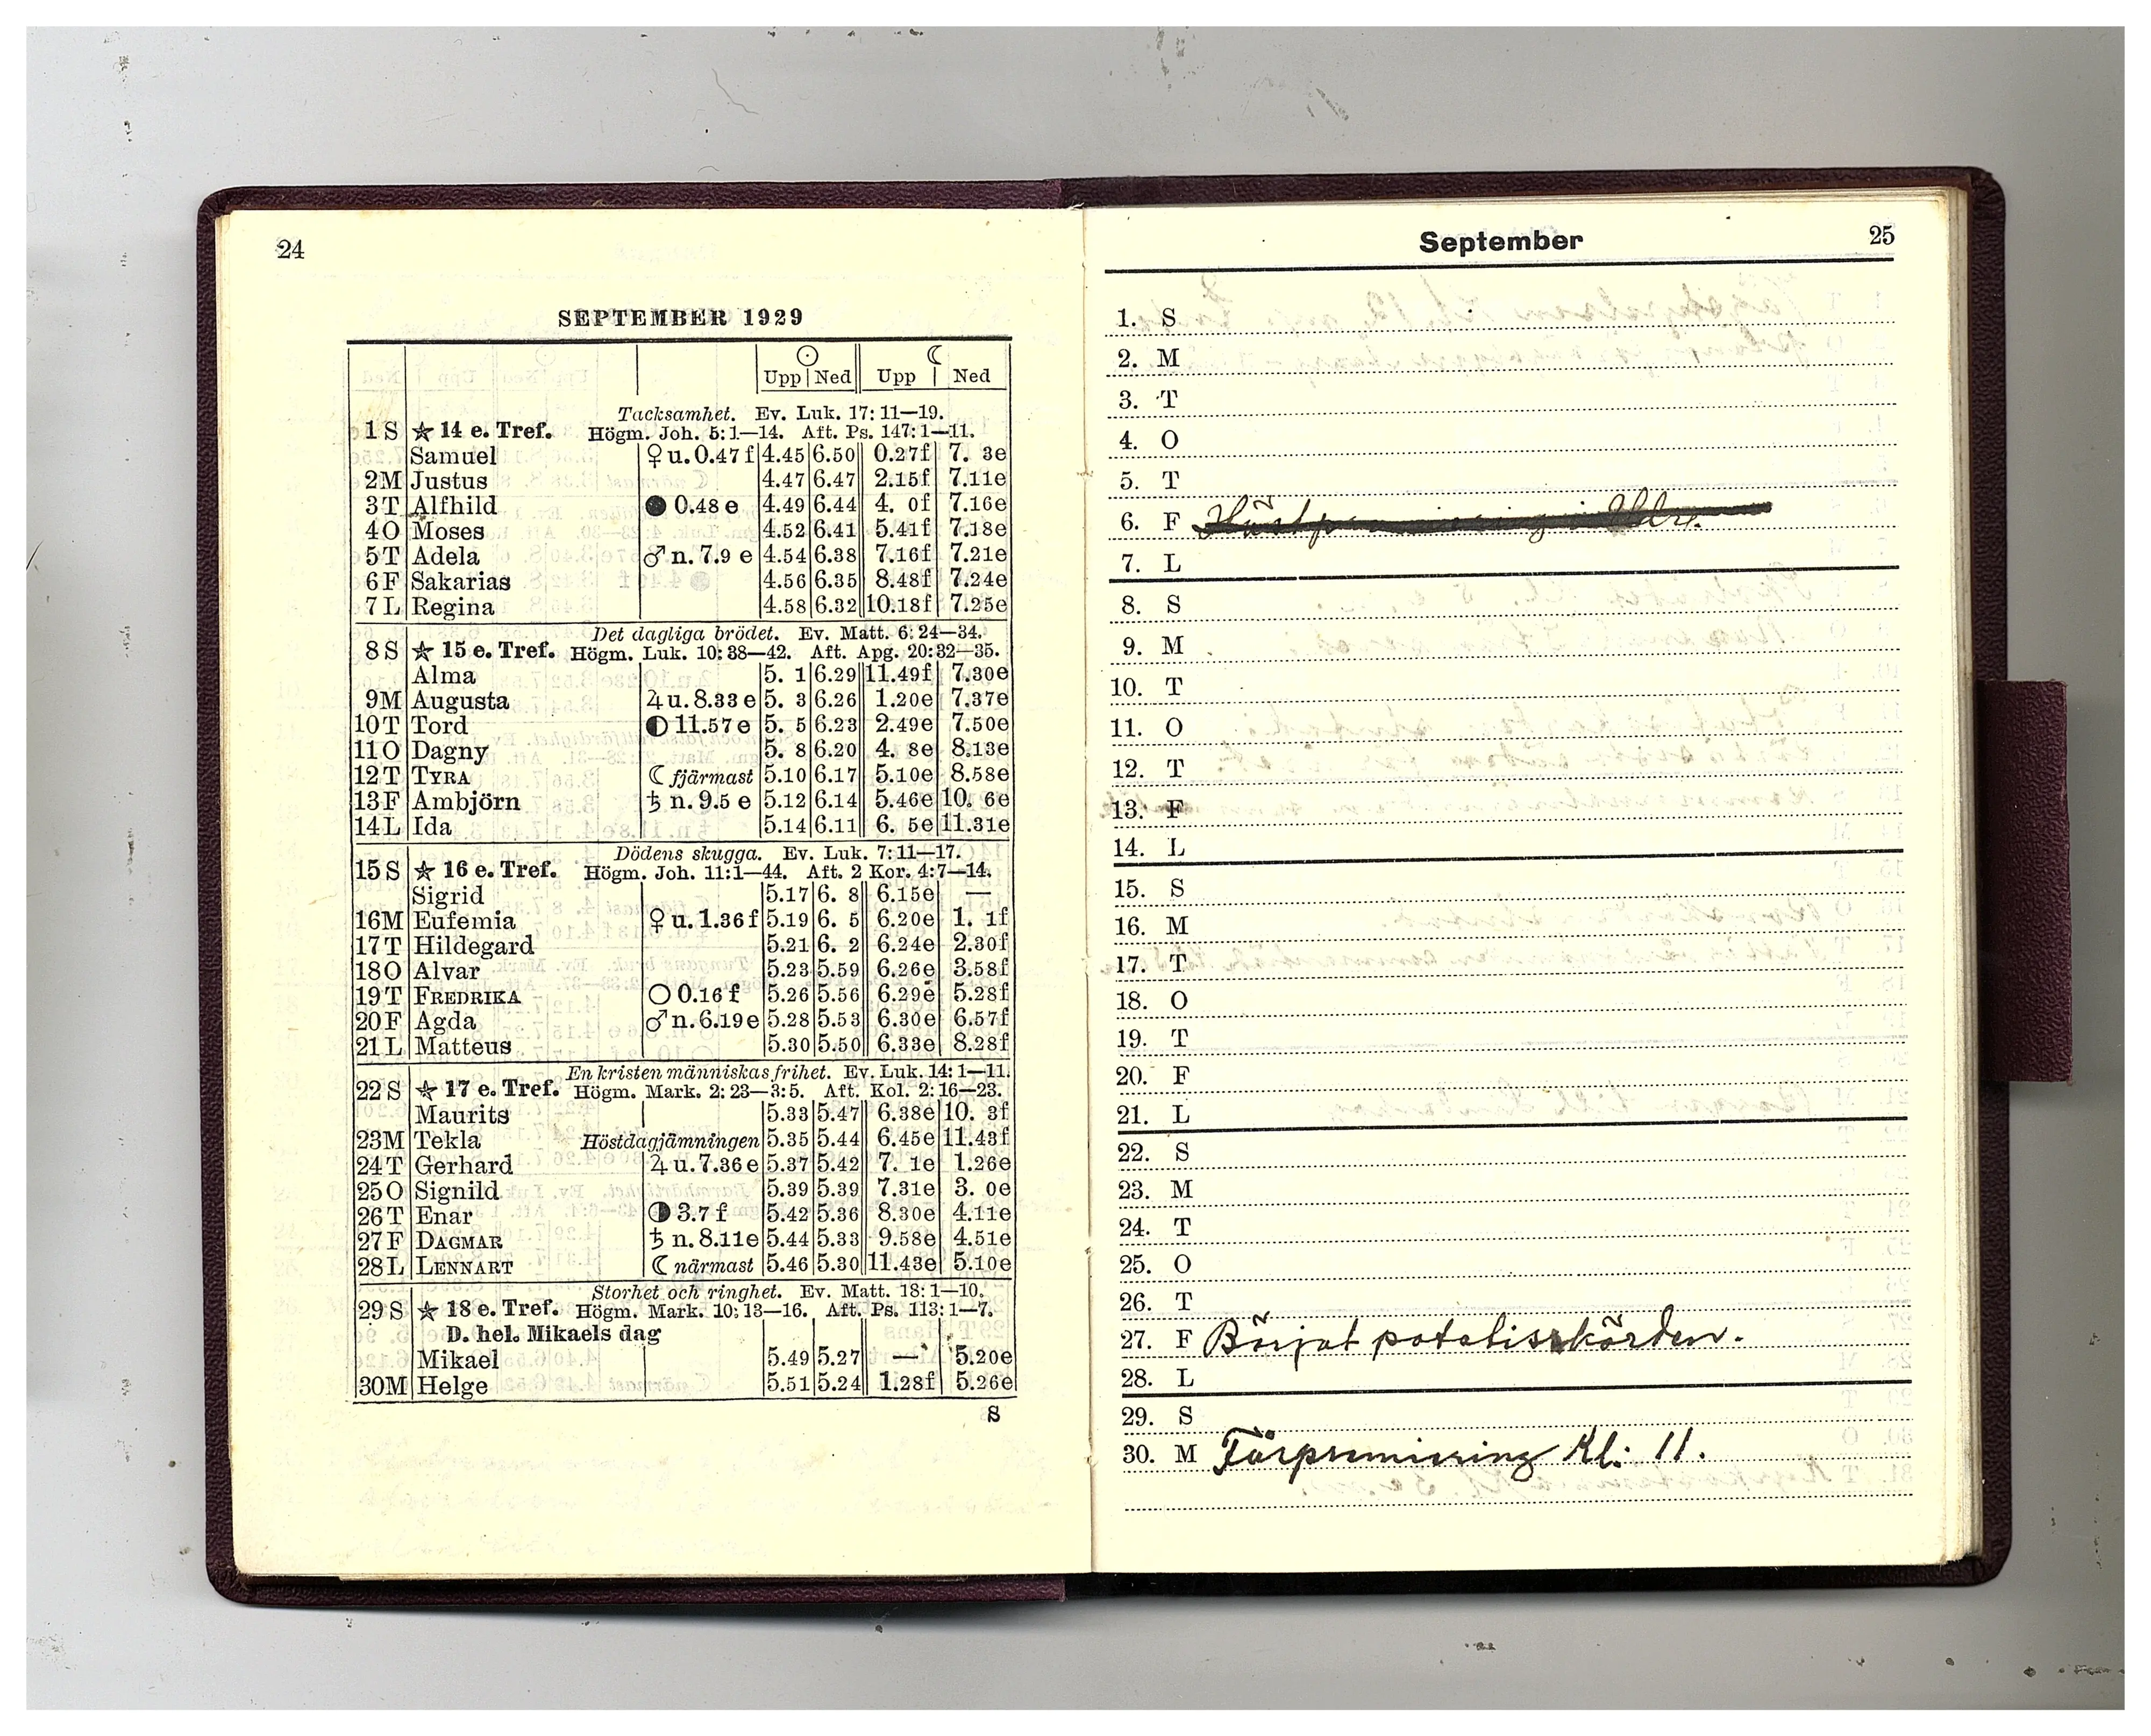 24
SEPTEMBER 1929
☉ ☾
Upp Ned Upp Ned
Tacksamhet. Ev. Luk. 17: 11—19.
1 S ★ 14 e. Tref. Högm. Joh. 5: 1—14. Aft. Ps. 147: 1—11.
Samuel ♀ u. 0.47 f 4.45 6.50 0.27f 7. 3e
2 M Justus 4.47 6.47 2.15f 7.11e
3 T Alfhild ● 0.48 e 4.49 6.44 4. 0f 7.16e
4 O Moses 4.52 6.41 5.41f 7.18e
5 T Adela ♂ n. 7.9 e 4.54 6.38 7.16f 7.21e
6 F Sakarias 4.56 6.35 8.48f 7.24e
7 L Regina 4.58 6.32 10.18f 7.25e
Det dagliga brödet. Ev. Matt. 6: 24—34.
8 S ★ 15 e. Tref. Högm. Luk. 10: 38—42. Aft. Apg. 20: 32—35.
Alma 5. 1 6.29 11.49f 7.30e
9 M Augusta ♃ u. 8.33 e 5. 3 6.26 1.20e 7.37e
10 T Tord ◐ 11.57 e 5. 5 6.23 2.49e 7.50e
11 O Dagny 5. 8 6.20 4. 8e 8.13e
12 T TYRA ☾ fjärmast 5.10 6.17 5.10e 8.58e
13 F Ambjörn ♄ n. 9.5 e 5.12 6.14 5.46e 10. 6e
14 L Ida 5.14 6.11 6. 5e 11.31e
Dödens skugga. Ev. Luk. 7: 11—17.
15 S ★ 16 e. Tref. Högm. Joh. 11: 1—44. Aft. 2 Kor. 4: 7—14.
Sigrid 5.17 6. 8 6.15e —
16 M Eufemia ♀ u. 1.36 f 5.19 6. 5 6.20e 1. 1f
17 T Hildegard 5.21 6. 2 6.24e 2.30f
18 O Alvar 5.23 5.59 6.26e 3.58f
19 T FREDRIKA ○ 0.16 f 5.26 5.56 6.29e 5.28f
20 F Agda ♂ n. 6.19 e 5.28 5.53 6.30e 6.57f
21 L Matteus 5.30 5.50 6.33e 8.28f
En kristen människas frihet. Ev. Luk. 14: 1—11.
22 S ★ 17 e. Tref. Högm. Mark. 2: 23—3: 5. Aft. Kol. 2: 16—23.
Maurits 5.33 5.47 6.38e 10. 3f
23 M Tekla Höstdagjämningen 5.35 5.44 6.45e 11.43f
24 T Gerhard ♃ u. 7.36 e 5.37 5.42 7. 1e 1.26e
25 O Signild 5.39 5.39 7.31e 3. 0e
26 T Enar ◑ 3.7 f 5.42 5.36 8.30e 4.11e
27 F DAGMAR ♄ n. 8.11 e 5.44 5.33 9.58e 4.51e
28 L LENNART ☾ närmast 5.46 5.30 11.43e 5.10e
Storhet och ringhet. Ev. Matt. 18: 1—10.
29 S ★ 18 e. Tref. Högm. Mark. 10: 13—16. Aft. Ps. 113: 1—7.
D. hel. Mikaels dag
Mikael 5.49 5.27 — 5.20e
30 M Helge 5.51 5.24 1.28f 5.26e
S
September 25
1. S
2. M
3. T
4. O
5. T
6. F
7. L
8. S
9. M
10. T
11. O
12. T
13. F
14. L
15. S
16. M
17. T
18. O
19. T
20. F
21. L
22. S
23. M
24. T
25. O
26. T
27. F Börjat potatisskörden.
28. L
29. S
30. M Fårpremiering Kl: 11.